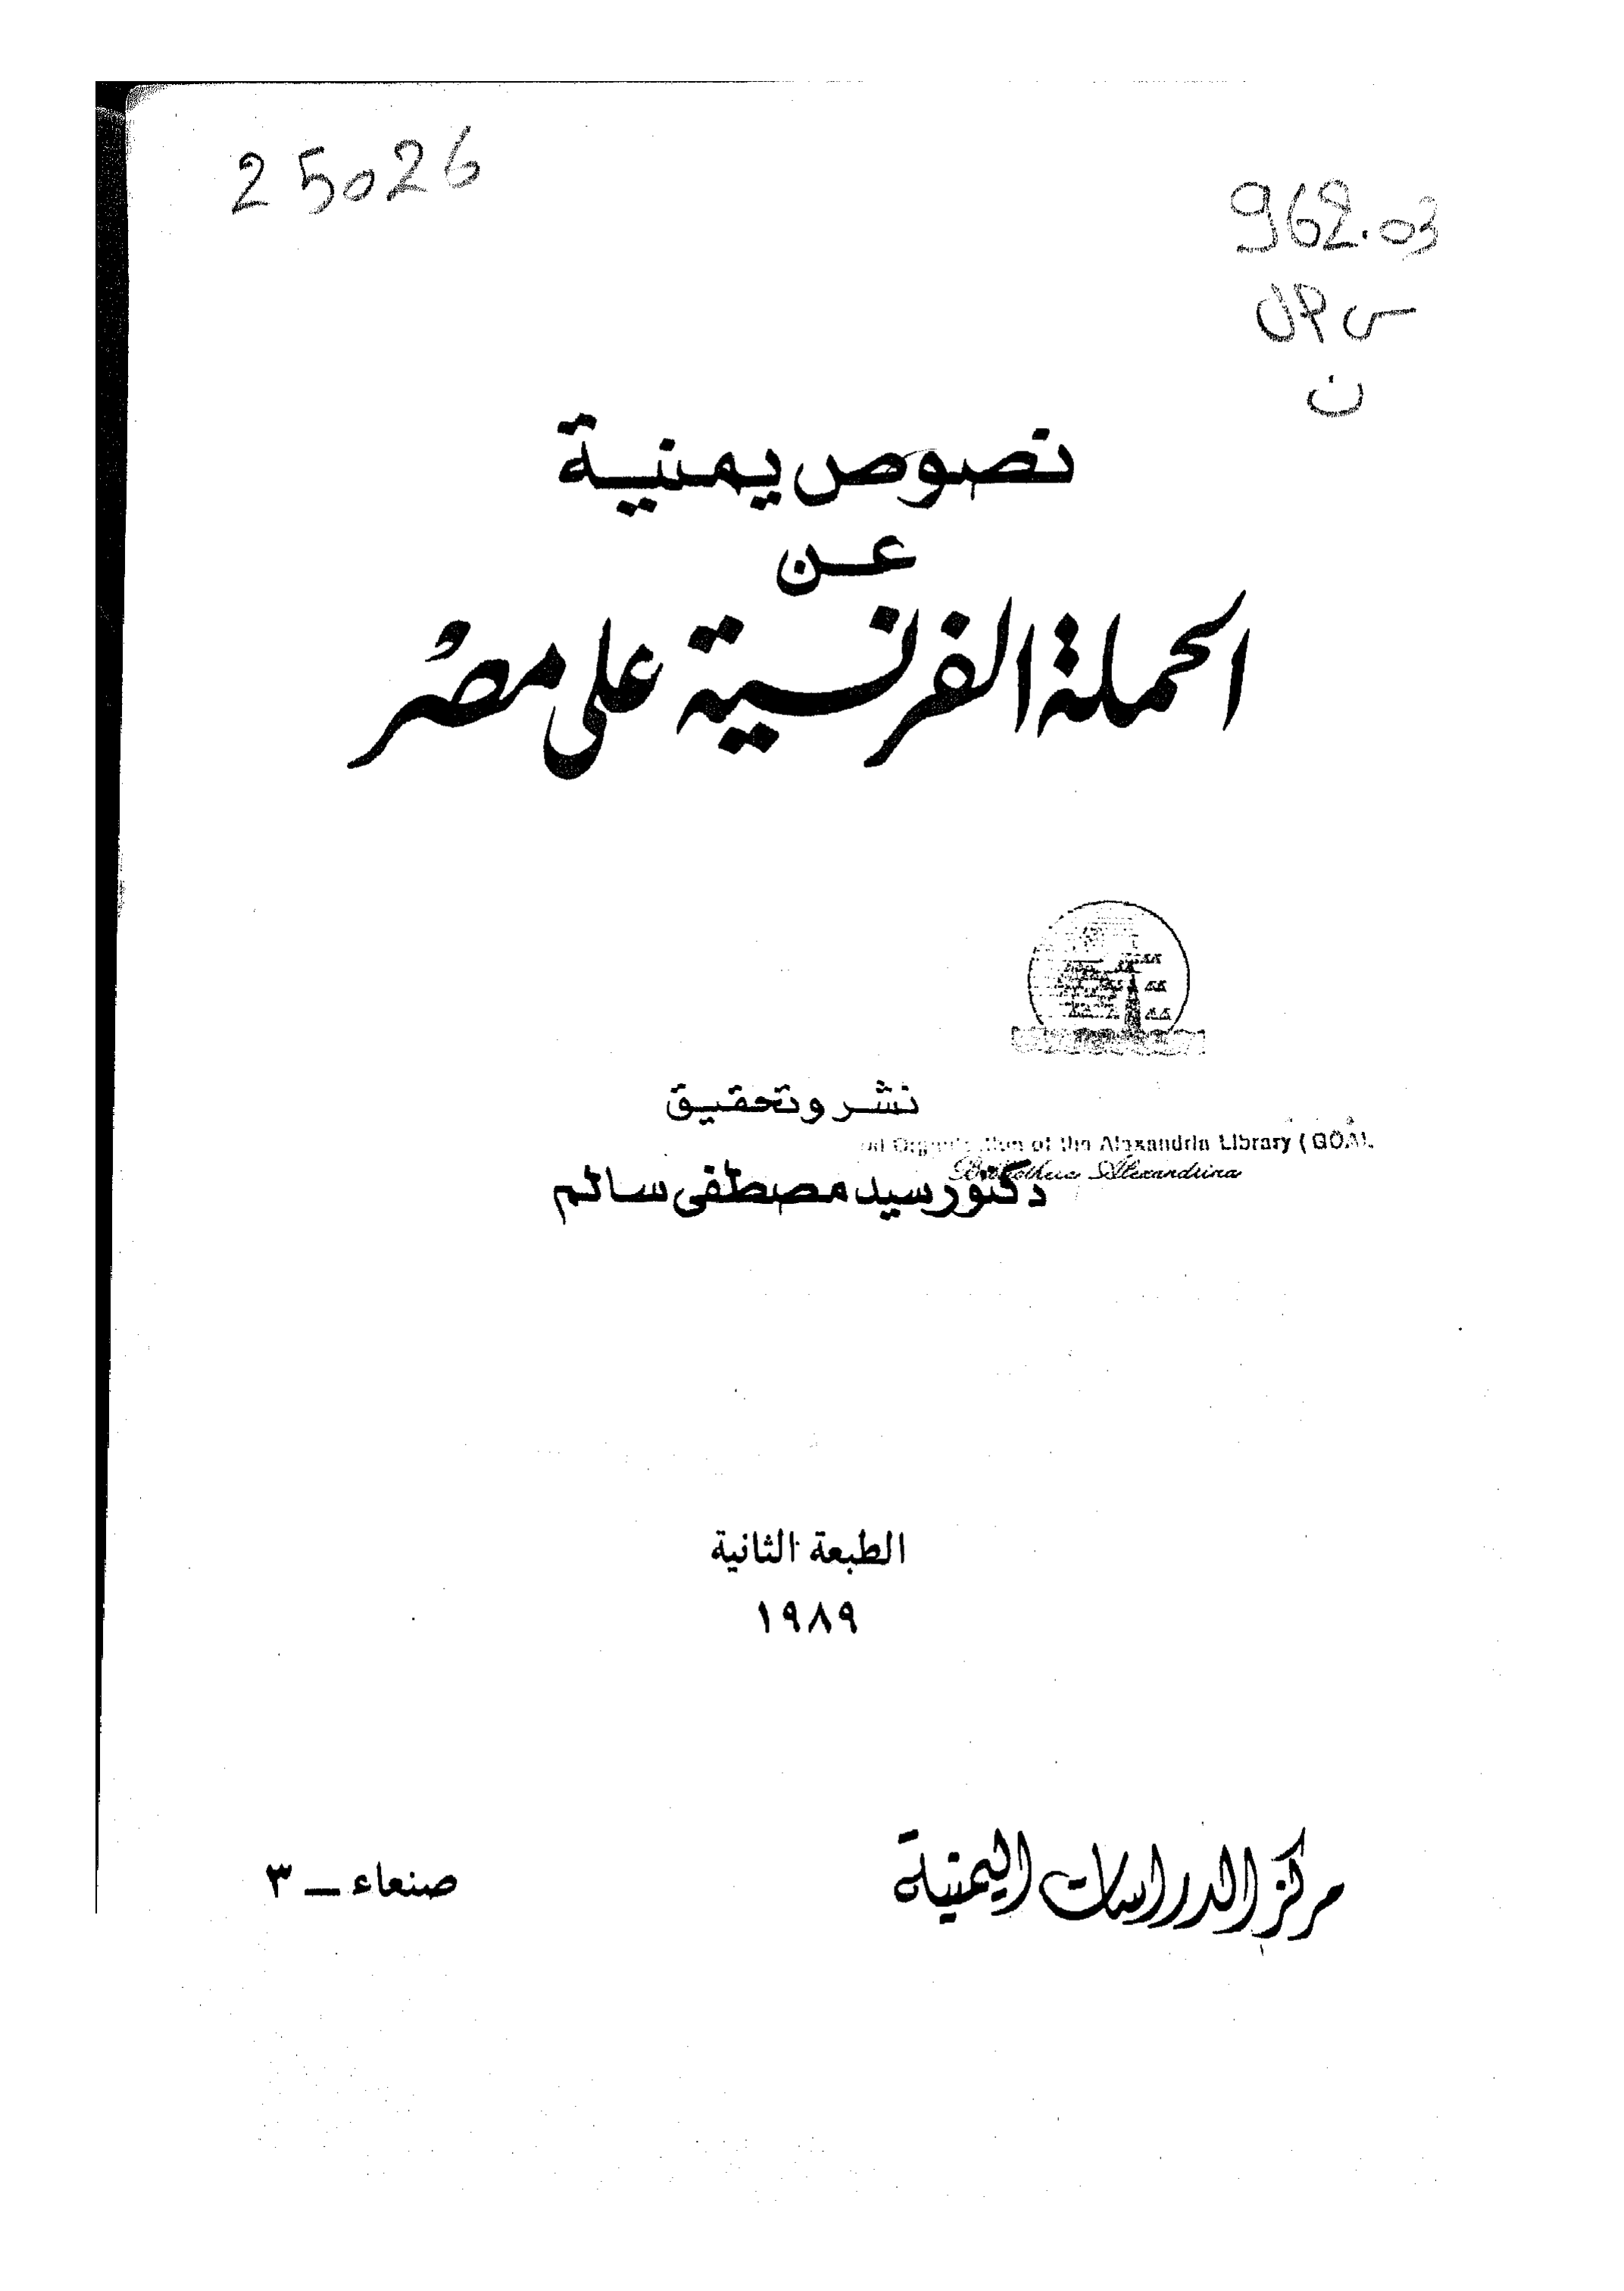 25026
962.03
ن
نصوص يمنية
عن
الحملة الفرنسية على مصر
نشر وتحقيق
of the Alexandria Library (GOAL
Bibliotheca Alexandrina
دكتور سيد مصطفى سالم
الطبعة الثانية
١٩٨٩
مركز الدراسات اليمنية
صنعاء — ٣